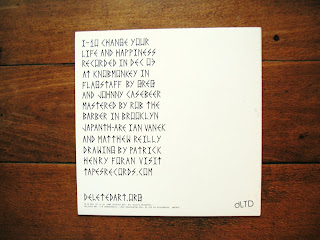 1-10 CHANGE YOUR
LIFE AND HAPPINESS
RECORDED IN DEC 03
AT KNOBMONKEY IN
FLAGSTAFF BY GREG
AND JOHNNY CASEBEER
MASTERED BY ROB THE
BARBER IN BROOKLYN
JAPANTH-ARE IAN VANEK
AND MATTHEW REILLY
DRAWING BY PATRICK
HENRY FORAN VISIT
TAPESRECORDS.COM
DELETEDART.ORG
dLTD